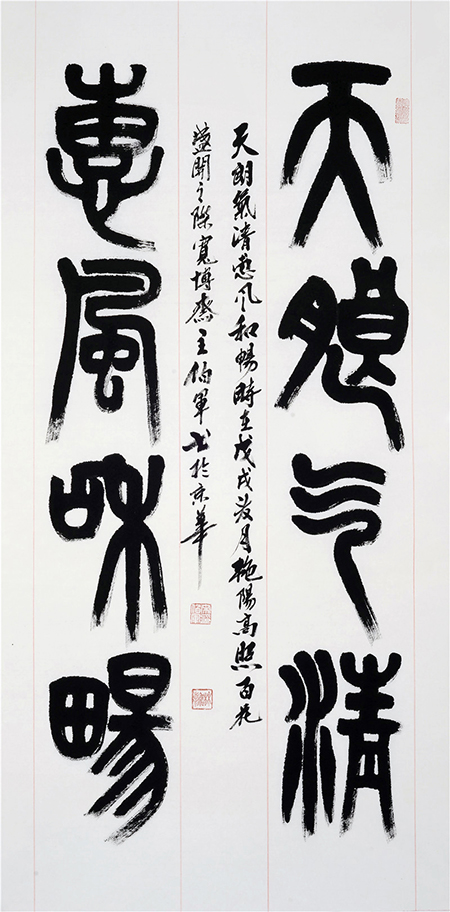 天朗气清
天朗氣清惠風和暢時在戊戌月艳陽高照百花
盛開之際寬博齋主伯軍书於京華
惠風和暢